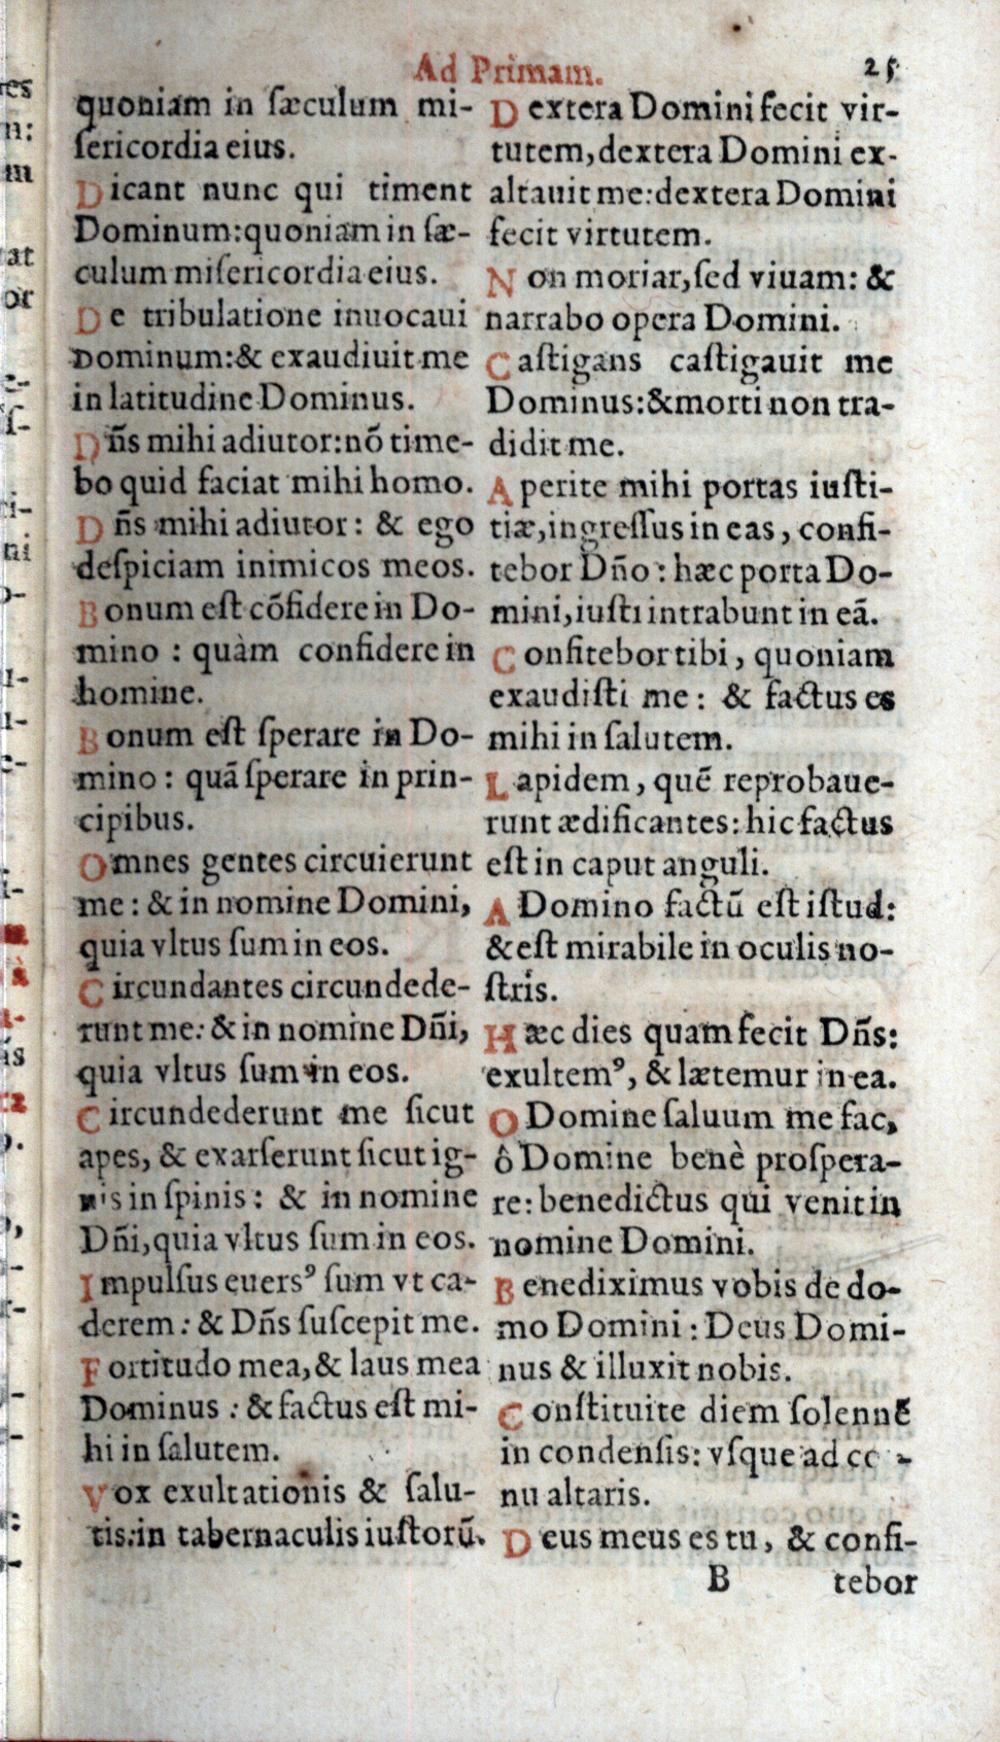 Ad Primam.
25
quoniam in ſæculum mi-
ſericordia eius.
Dicant nunc qui timent
Dominum: quoniam in ſæ-
culum miſericordia eius.
De tribulatione inuocaui
Dominum: & exaudiuit me
in latitudine Dominus.
Dñs mihi adiutor: nõ time-
bo quid faciat mihi homo.
Dñs mihi adiutor: & ego
deſpiciam inimicos meos.
Bonum eſt cõfidere in Do-
mino : quàm confidere in
homine.
Bonum eſt ſperare in Do-
mino : quã ſperare in prin-
cipibus.
Omnes gentes circuierunt
me : & in nomine Domini,
quia vltus ſum in eos.
Circundantes circundede-
runt me: & in nomine Dñi,
quia vltus ſum in eos.
Circundederunt me ſicut
apes, & exarſerunt ſicut ig-
nis in ſpinis : & in nomine
Dñi, quia vltus ſum in eos.
Impulſus euersꝰ ſum vt ca-
derem : & Dñs ſuſcepit me.
Fortitudo mea, & laus mea
Dominus : & factus eſt mi-
hi in ſalutem.
Vox exultationis & ſalu-
tis: in tabernaculis iuſtorũ.
Dextera Domini fecit vir-
tutem, dextera Domini ex-
altauit me: dextera Domini
fecit virtutem.
Non moriar, ſed viuam: &
narrabo opera Domini.
Caſtigans caſtigauit me
Dominus: & morti non tra-
didit me.
Aperite mihi portas iuſti-
tiæ, ingreſſus in eas, confi-
tebor Dño : hæc porta Do-
mini, iuſti intrabunt in eã.
Confitebor tibi, quoniam
exaudiſti me : & factus es
mihi in ſalutem.
Lapidem, quẽ reprobaue-
runt ædificantes: hic factus
eſt in caput anguli.
A Domino factũ eſt iſtud:
& eſt mirabile in oculis no-
ſtris.
Hæc dies quam fecit Dñs:
exultemꝰ, & lætemur in ea.
O Domine ſaluum me fac,
ô Domine benè proſpera-
re: benedictus qui venit in
nomine Domini.
Benediximus vobis de do-
mo Domini : Deus Domi-
nus & illuxit nobis.
Conſtituite diem ſolennẽ
in condenſis: vſque ad co -
nu altaris.
Deus meus es tu, & confi-
B
tebor